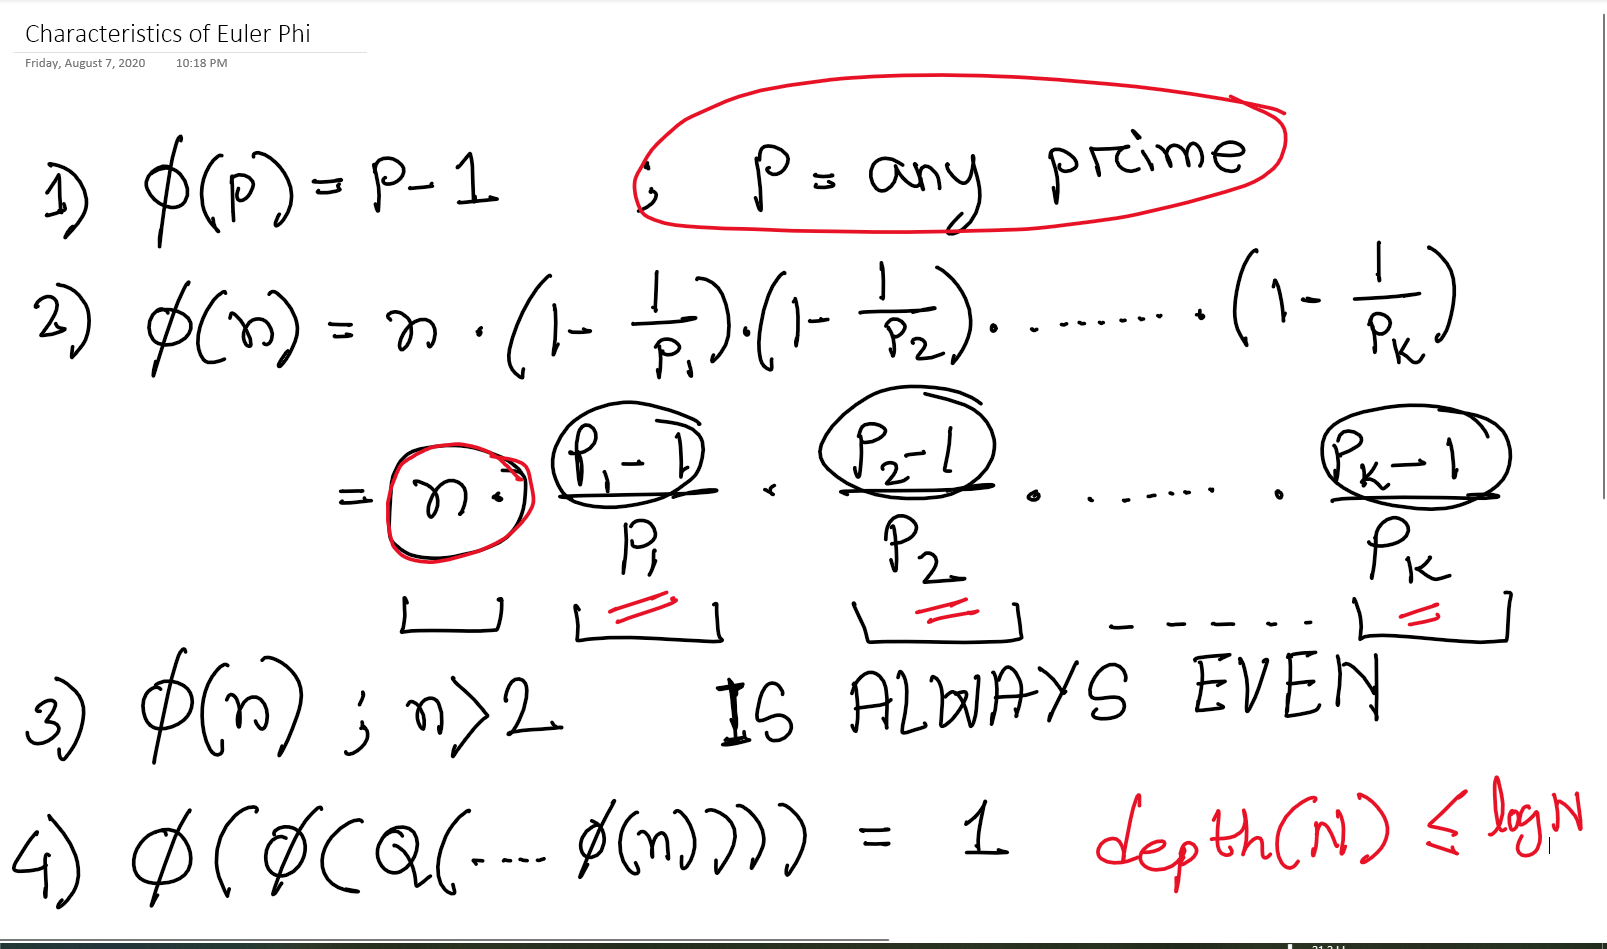 Characteristics of Euler Phi
Friday, August 7, 2020 10:18 PM
1) ϕ(p) = p-1 ; p = any prime
2) ϕ(n) = n · (1 - 1/P₁) · (1 - 1/P₂) · ........ · (1 - 1/Pₖ)
= n · (P₁-1)/P₁ · (P₂-1)/P₂ · ....... · (Pₖ-1)/Pₖ
3) ϕ(n) ; n>2 IS ALWAYS EVEN
4) ϕ(ϕ(Q(.... ϕ(n)))) = 1 depth(N) ≤ log N